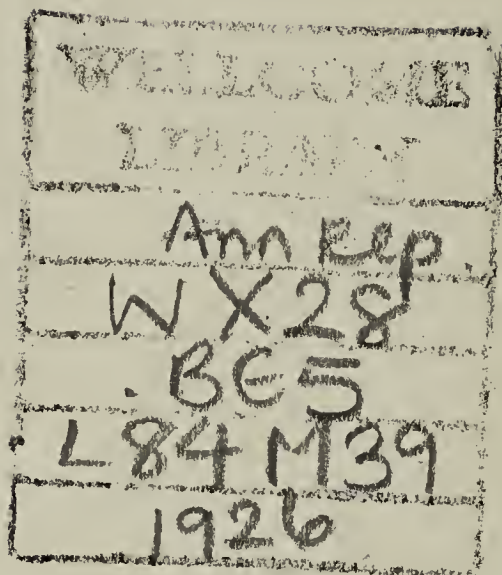 WELLCOME
LIBRARY
Ann Rep
WX28
.BE5
L84M39
1926